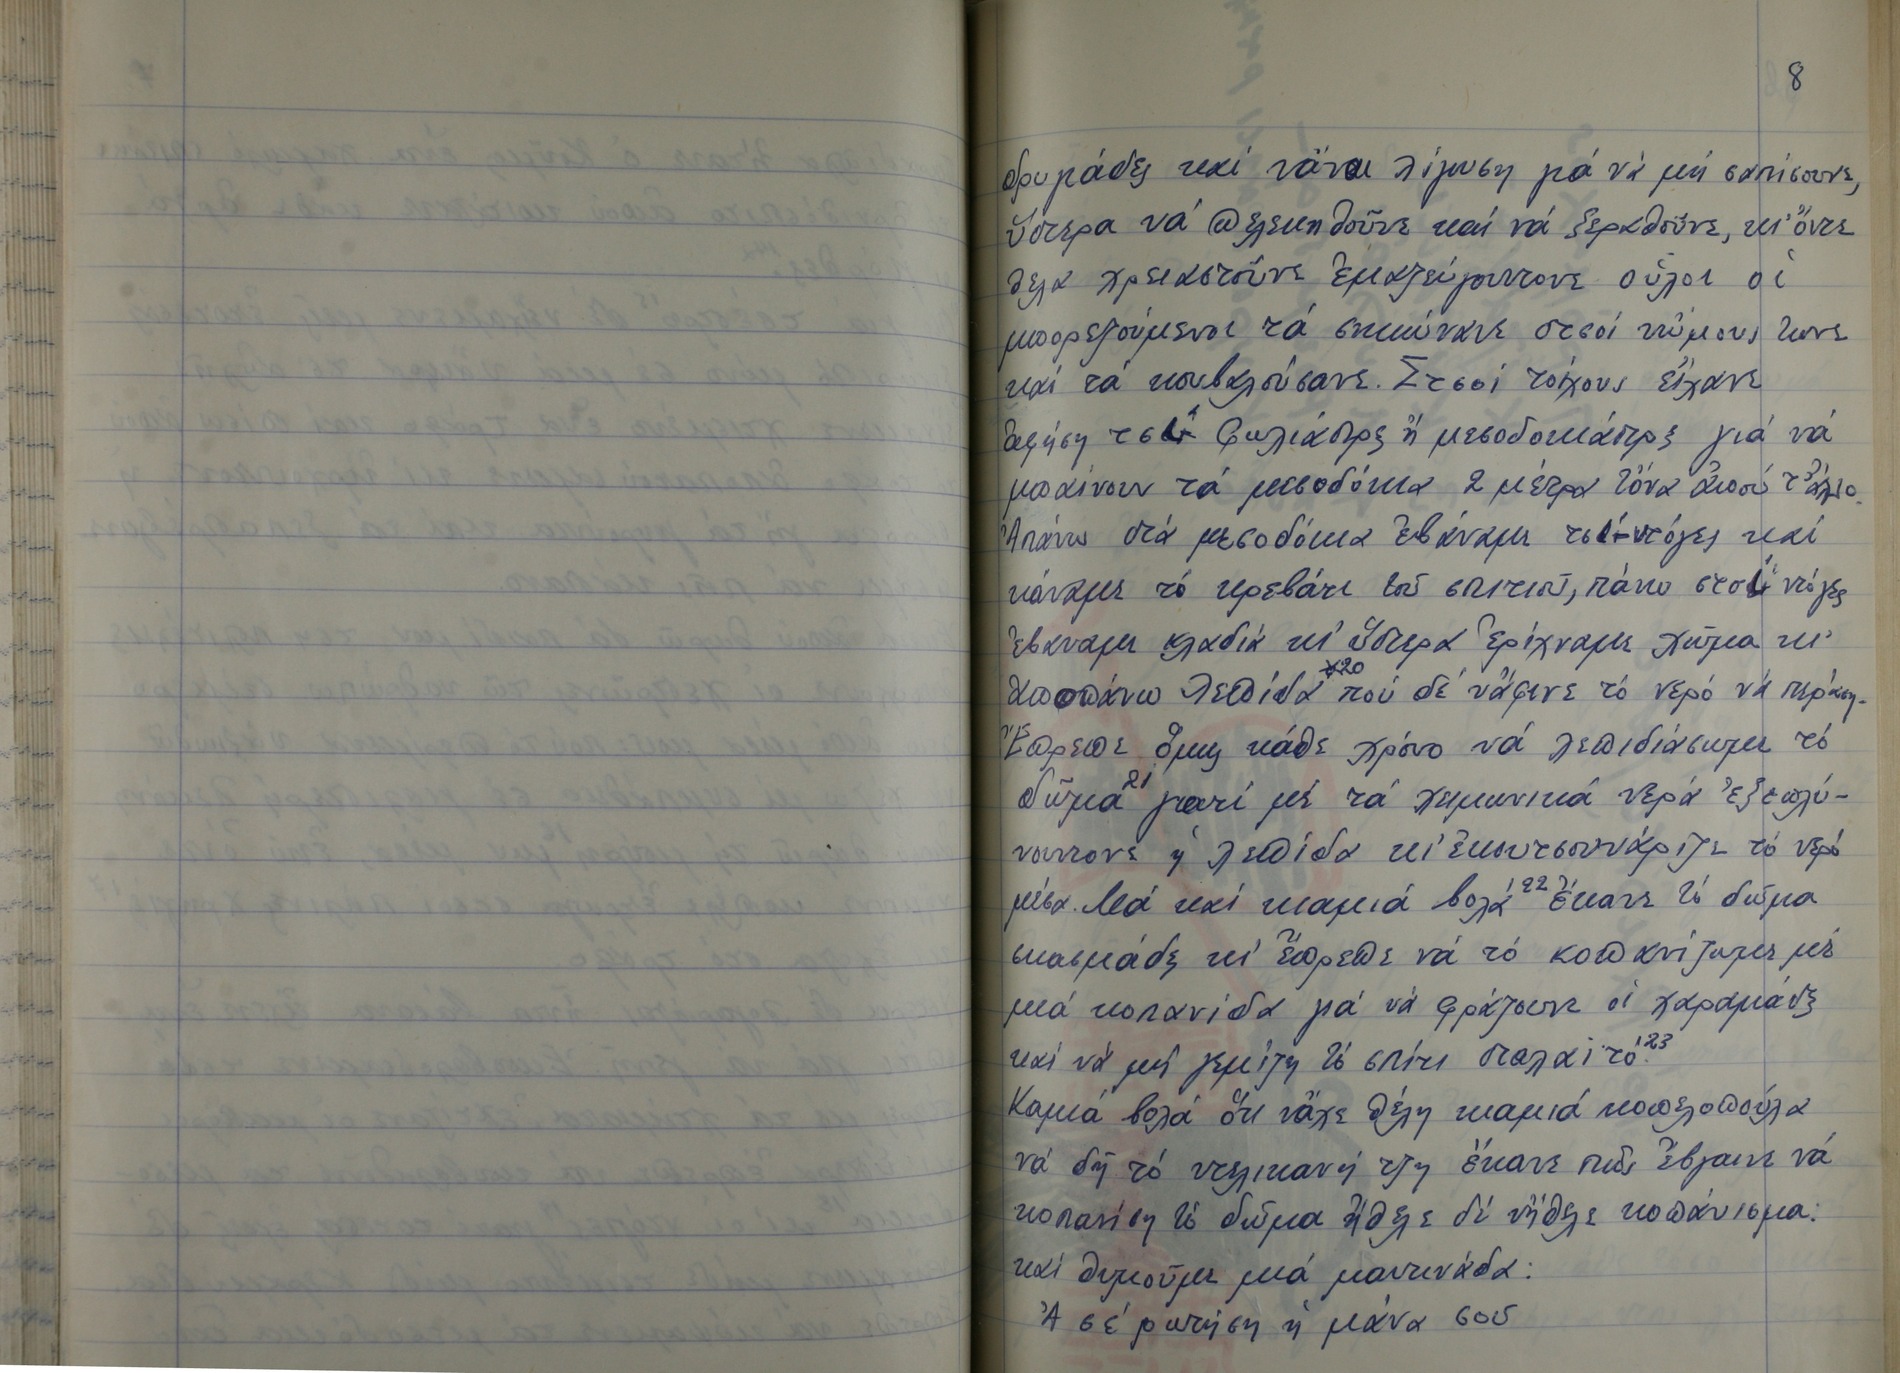 8
δρυμάδες καί νἆναι λίγωση γιά νά μή σαπίσουνε,
ὕστερα νά πελεκηθοῦνε καί νά ξεραθοῦνε, κι' ὄντε
θελα χρειαστοῦνε ἐμαζεύγουντονε οὗλοι οἱ
μπορεζούμενοι τά σηκώνανε στσοί νώμους τωνε
καί τά κουβαλούσανε. Στσοί τοίχους εἴχανε
ἀφήση τσί φωλιάστρες ἤ μεσοδοκιάστρες γιά νά
μπαίνουν τά μεσοδόκια 2 μέτρα τὄνα ἀπού τ' ἄλλο.
Ἀπάνω στά μεσοδόκια ἐβάναμε τσί ντόγες καί
κάναμε τό κρεβάτι τοῦ σπιτιοῦ, πάνω στσί ντόγες
ἐβάναμε κλαδιά κι' ὕστερα ἐρίχναμε χῶμα κι'
ἀποπάνω λεπίδα 20 πού δέ νἄφινε τό νερό νά περάση.
Ἔπρεπε ὅμως κάθε χρόνο νά λεπιδιάσωμε τό
δῶμα 21 γιατί μέ τά χειμωνικά νερά ἐξεπλύ-
νουντονε ἡ λεπίδα κι' ἐκουτσουνάριζε τό νερό
μέσα. Μά καί καμιά βολά 22 ἔκανε τό δῶμα
σκασμάδες κι' ἔπρεπε νά τό κοπανίζωμε μέ
μιά κοπανίδα γιά νά φράζουνε οἱ χαραμάδες
καί νά μή γεμίζη τό σπίτι σταλαϊτό. 23
Καμιά βολά ὅτι νἆχε θέλη καμιά κοπελοπούλα
νά δῆ τό ντελικανή τζη ἔκανε πῶς ἔβγαινε νά
κοπανίση τό δῶμα ἤθελε δέ νἤθελε κοπάνισμα:
καί θυμοῦμαι μιά μαντινάδα:
Ἄ σέ ρωτήση ἡ μάνα σου